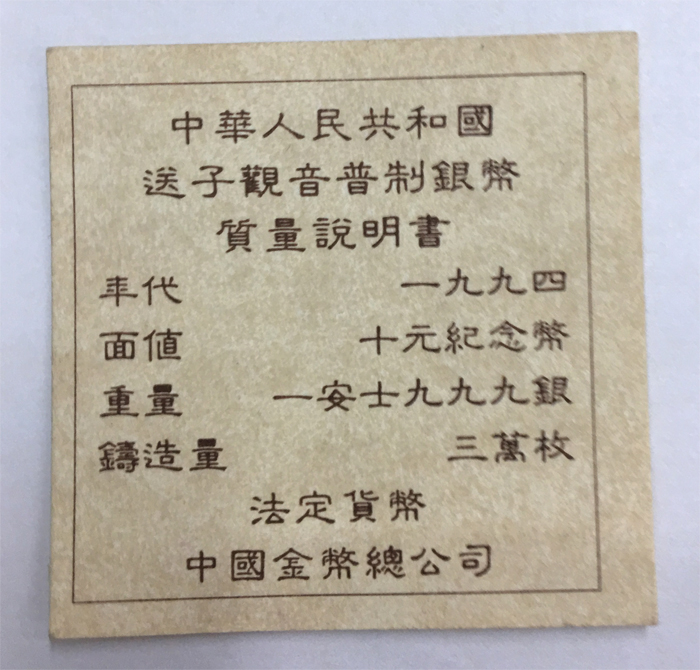 中華人民共和國
送子觀音普制銀幣
質量說明書
年代 一九九四
面值 十元紀念幣
重量 一安士九九九銀
鑄造量 三萬枚
法定貨幣
中國金幣總公司